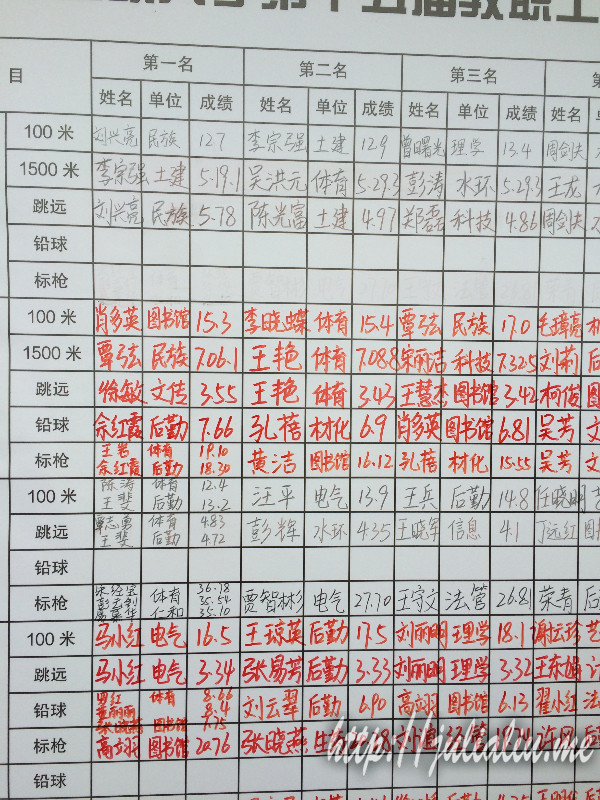 第十五届教职工
目 第一名 第二名 第三名
姓名 单位 成绩 姓名 单位 成绩 姓名 单位 成绩 姓名
100米 刘兴亮 民族 127 李宗强 土建 129 曾曙光 理学 13.4 周剑
1500米 李宗强 土建 5.19.1 吴洪元 体育 5.29.3 彭涛 水环 5.29.3 王龙
跳远 刘兴亮 民族 5.78 陈光富 土建 4.97 郑磊 科技 4.86 周剑
铅球
标枪
100米 肖多英 图书馆 15.3 李晓蝶 体育 15.4 覃弦 民族 17.0 毛璋亮 机
1500米 覃弦 民族 7.06.1 王艳 体育 7.08.8 宋丽洁 科技 7.32.5 刘莉 后
跳远 徐敏 文传 3.55 王艳 体育 3.43 王慧杰 图书馆 3.42 柯俊 图
铅球 佘红霞 后勤 7.66 孔蓓 材化 6.9 肖多英 图书馆 6.81 吴芳 文
标枪 王岩 体育 19.10 黄洁 图书馆 16.12 孔蓓 材化 15.55 吴芳 文
佘红霞 后勤 18.30
100米 陈涛 体育 12.4 汪平 电气 13.9 王兵 后勤 14.8 任晓明
王斐 后勤 13.2
跳远 覃志勇 体育 4.83 彭辉 水环 4.35 王晓军 信息 4.1 丁远红 图
王斐 后勤 4.72
铅球
标枪 36.78 贾智彬 电气 27.70 王守文 法管 26.81 荣青 后
体育 35.54
仁和 35.10
100米 马小红 电气 16.5 王琼英 后勤 17.5 刘丽明 理学 18.1 谢云珍 艺
跳远 马小红 电气 3.34 张易芳 后勤 3.33 刘丽明 理学 3.32 王东娟 计
铅球 覃红 体育 8.66 刘云翠 后勤 6.90 高翊 图书馆 6.13 翟小红 法
8.4
图书馆 7.75
标枪 高翊 图书馆 20.76 张晓燕 许网 后
铅球
http://jalalu.me